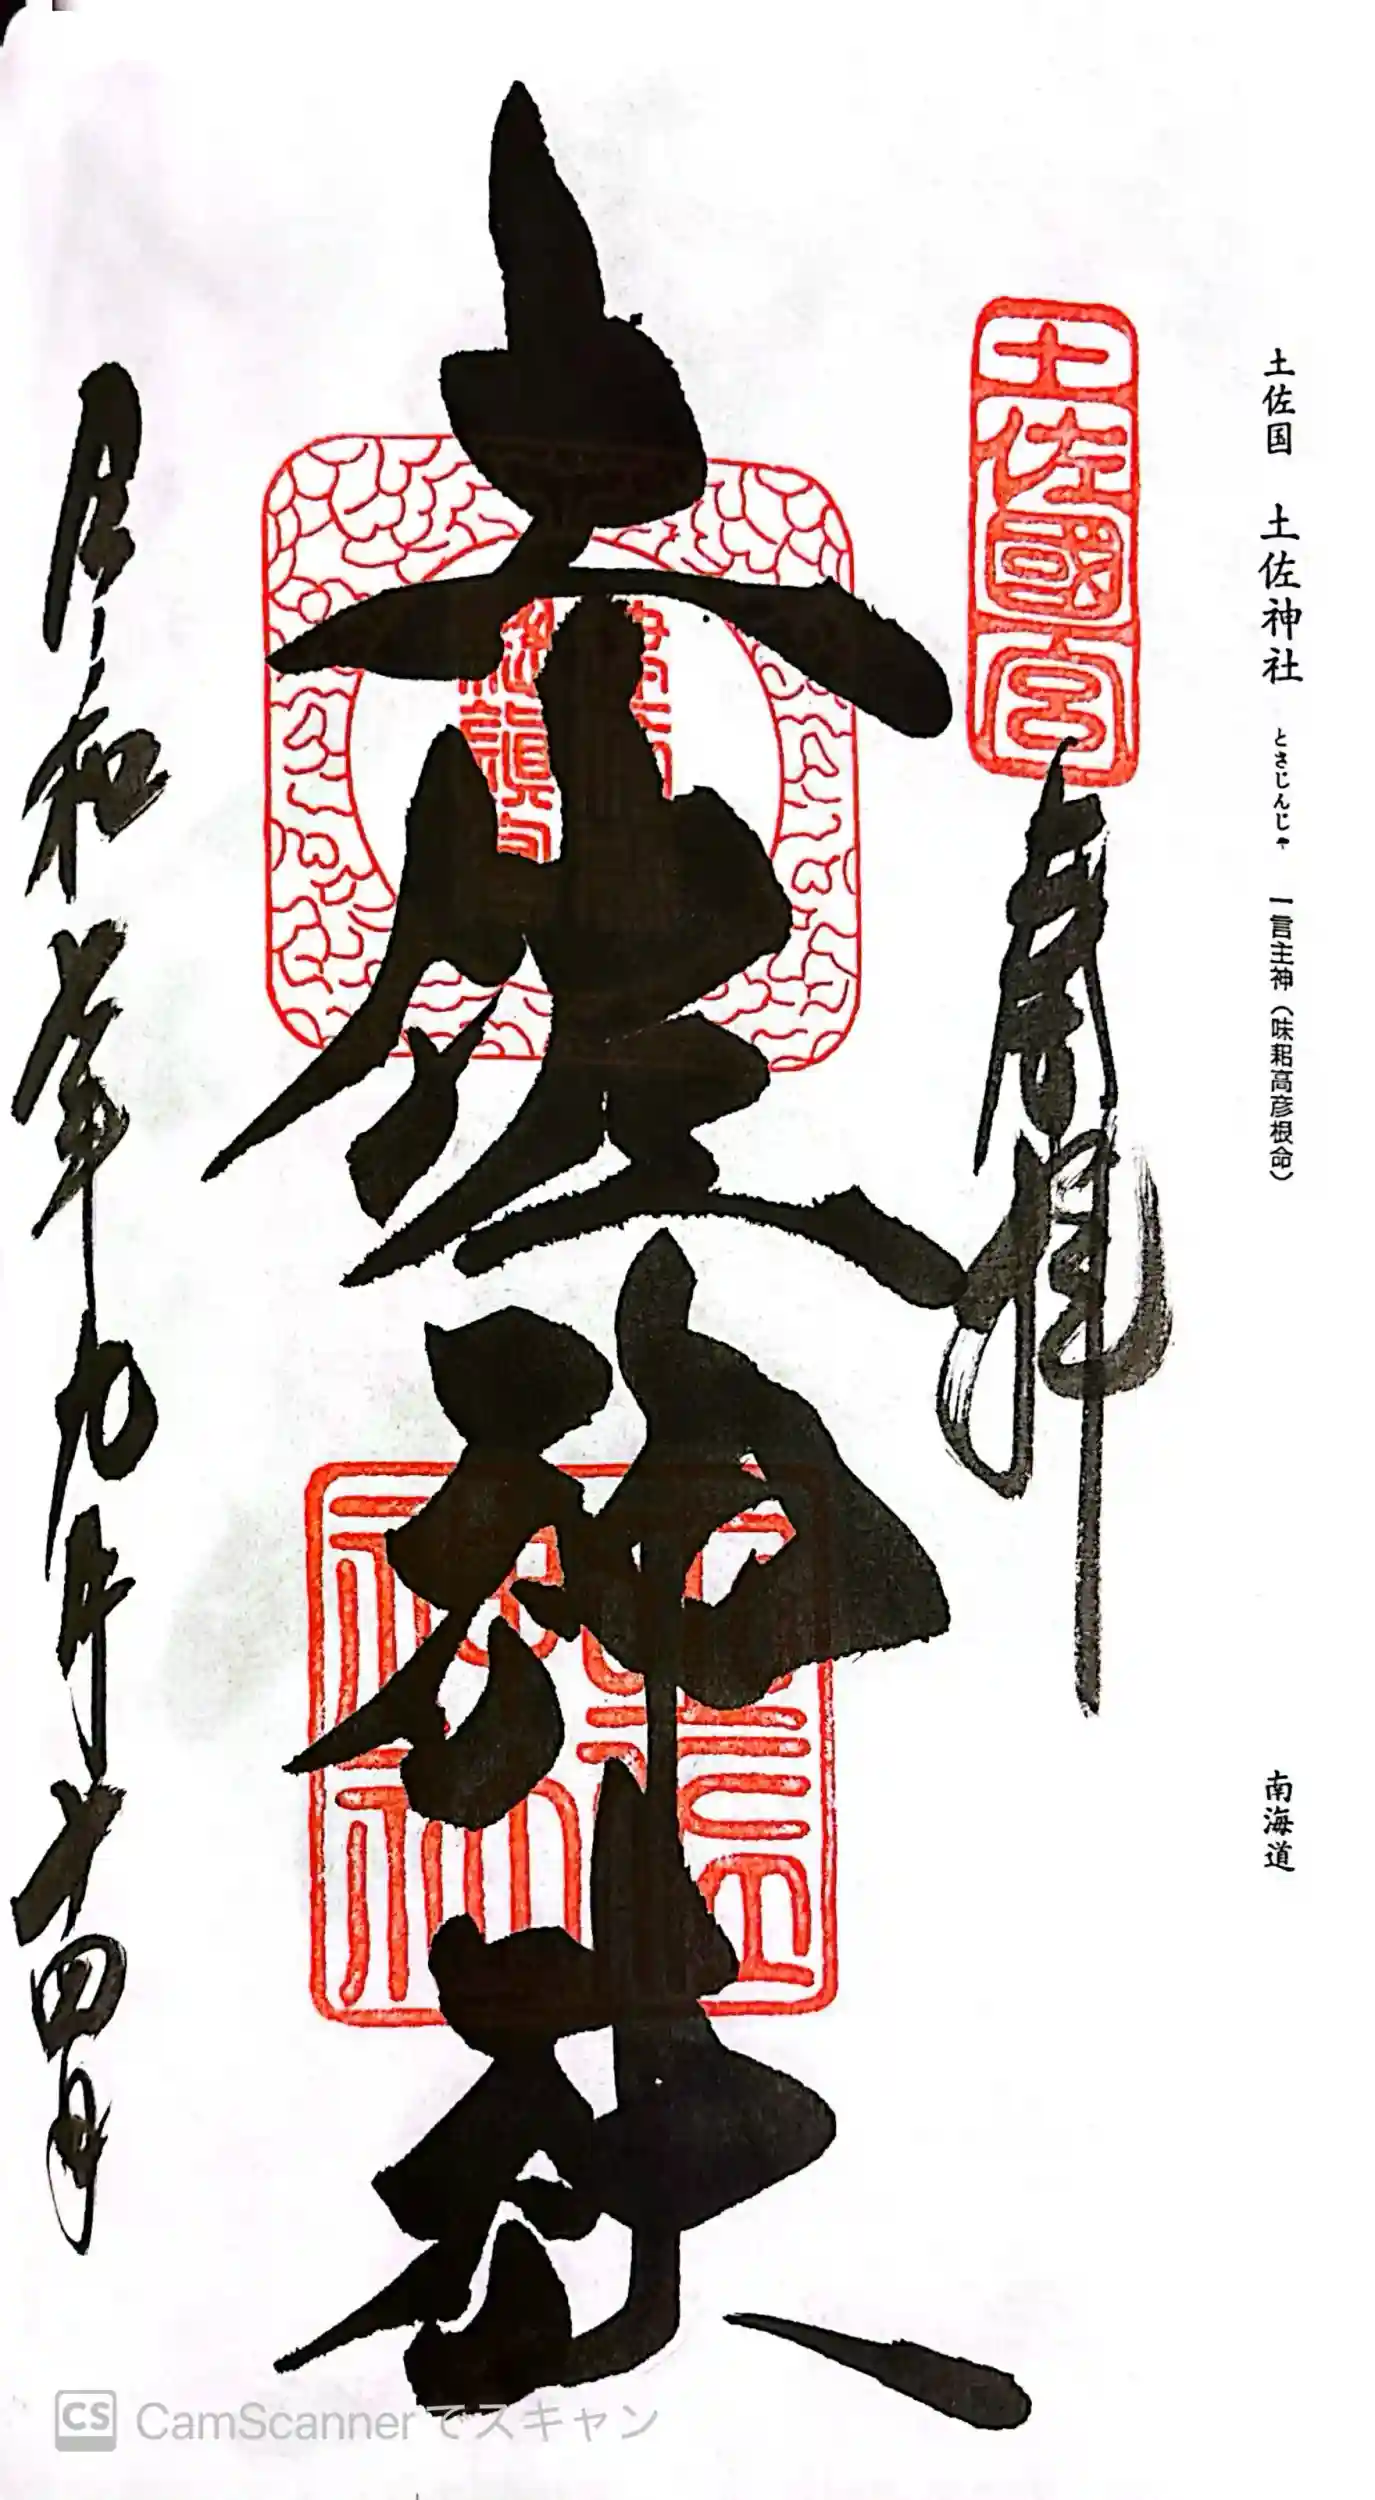 土佐国 土佐神社 とさじんじゃ 一言主神(味耜高彦根命) 南海道
土佐國一宮
奉拝
土佐神社
令和 年九月十四日
CS CamScannerでスキャン